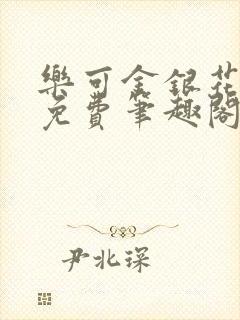 樂可金銀花
免費筆趣閣
尹北琛